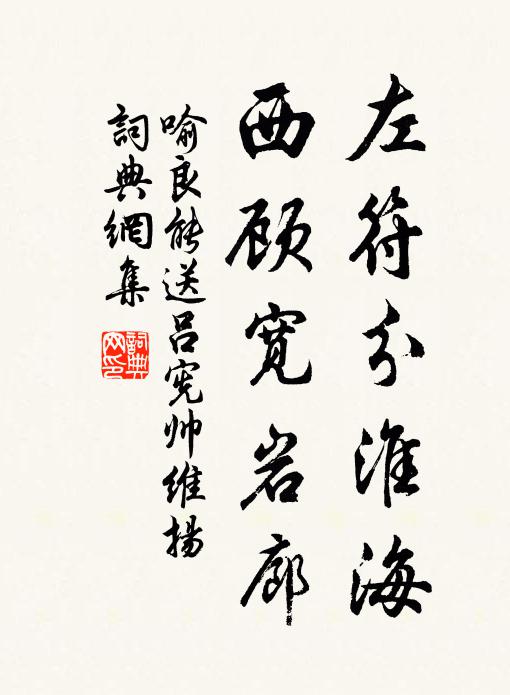 左符分淮海
西顾宽岩廊
喻良能送吕宪帅维扬
詞典網集
詞典网印